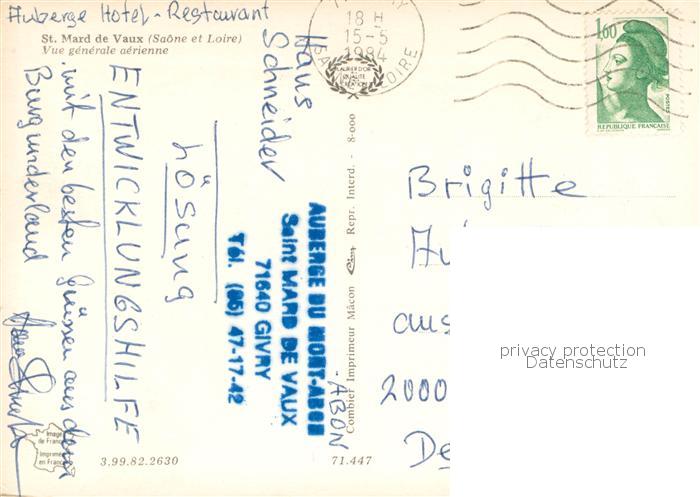 Auberge Hotel-Restaurant
St. Mard de Vaux (Saône et Loire)
Vue générale aérienne
Hans
Schneider
Lösung
ENTWICKLUNGSHILFE
mit den besten Grüssen aus dem
Burgunderland
18 H
15-5
1984
LOIRE
1,60
POSTES
REPUBLIQUE FRANÇAISE
AUBERGE DU MONT-ABON
Saint MARD DE VAUX
71640 GIVRY
Tél. (85) 47-17-42
-ABON
Combier Imprimeur Mâcon Cim Repr. Interd. - 8-000
Brigitte
aus
2000
privacy protection
Datenschutz
Image
de France
Imprimé
en France
3.99.82.2630
71.447